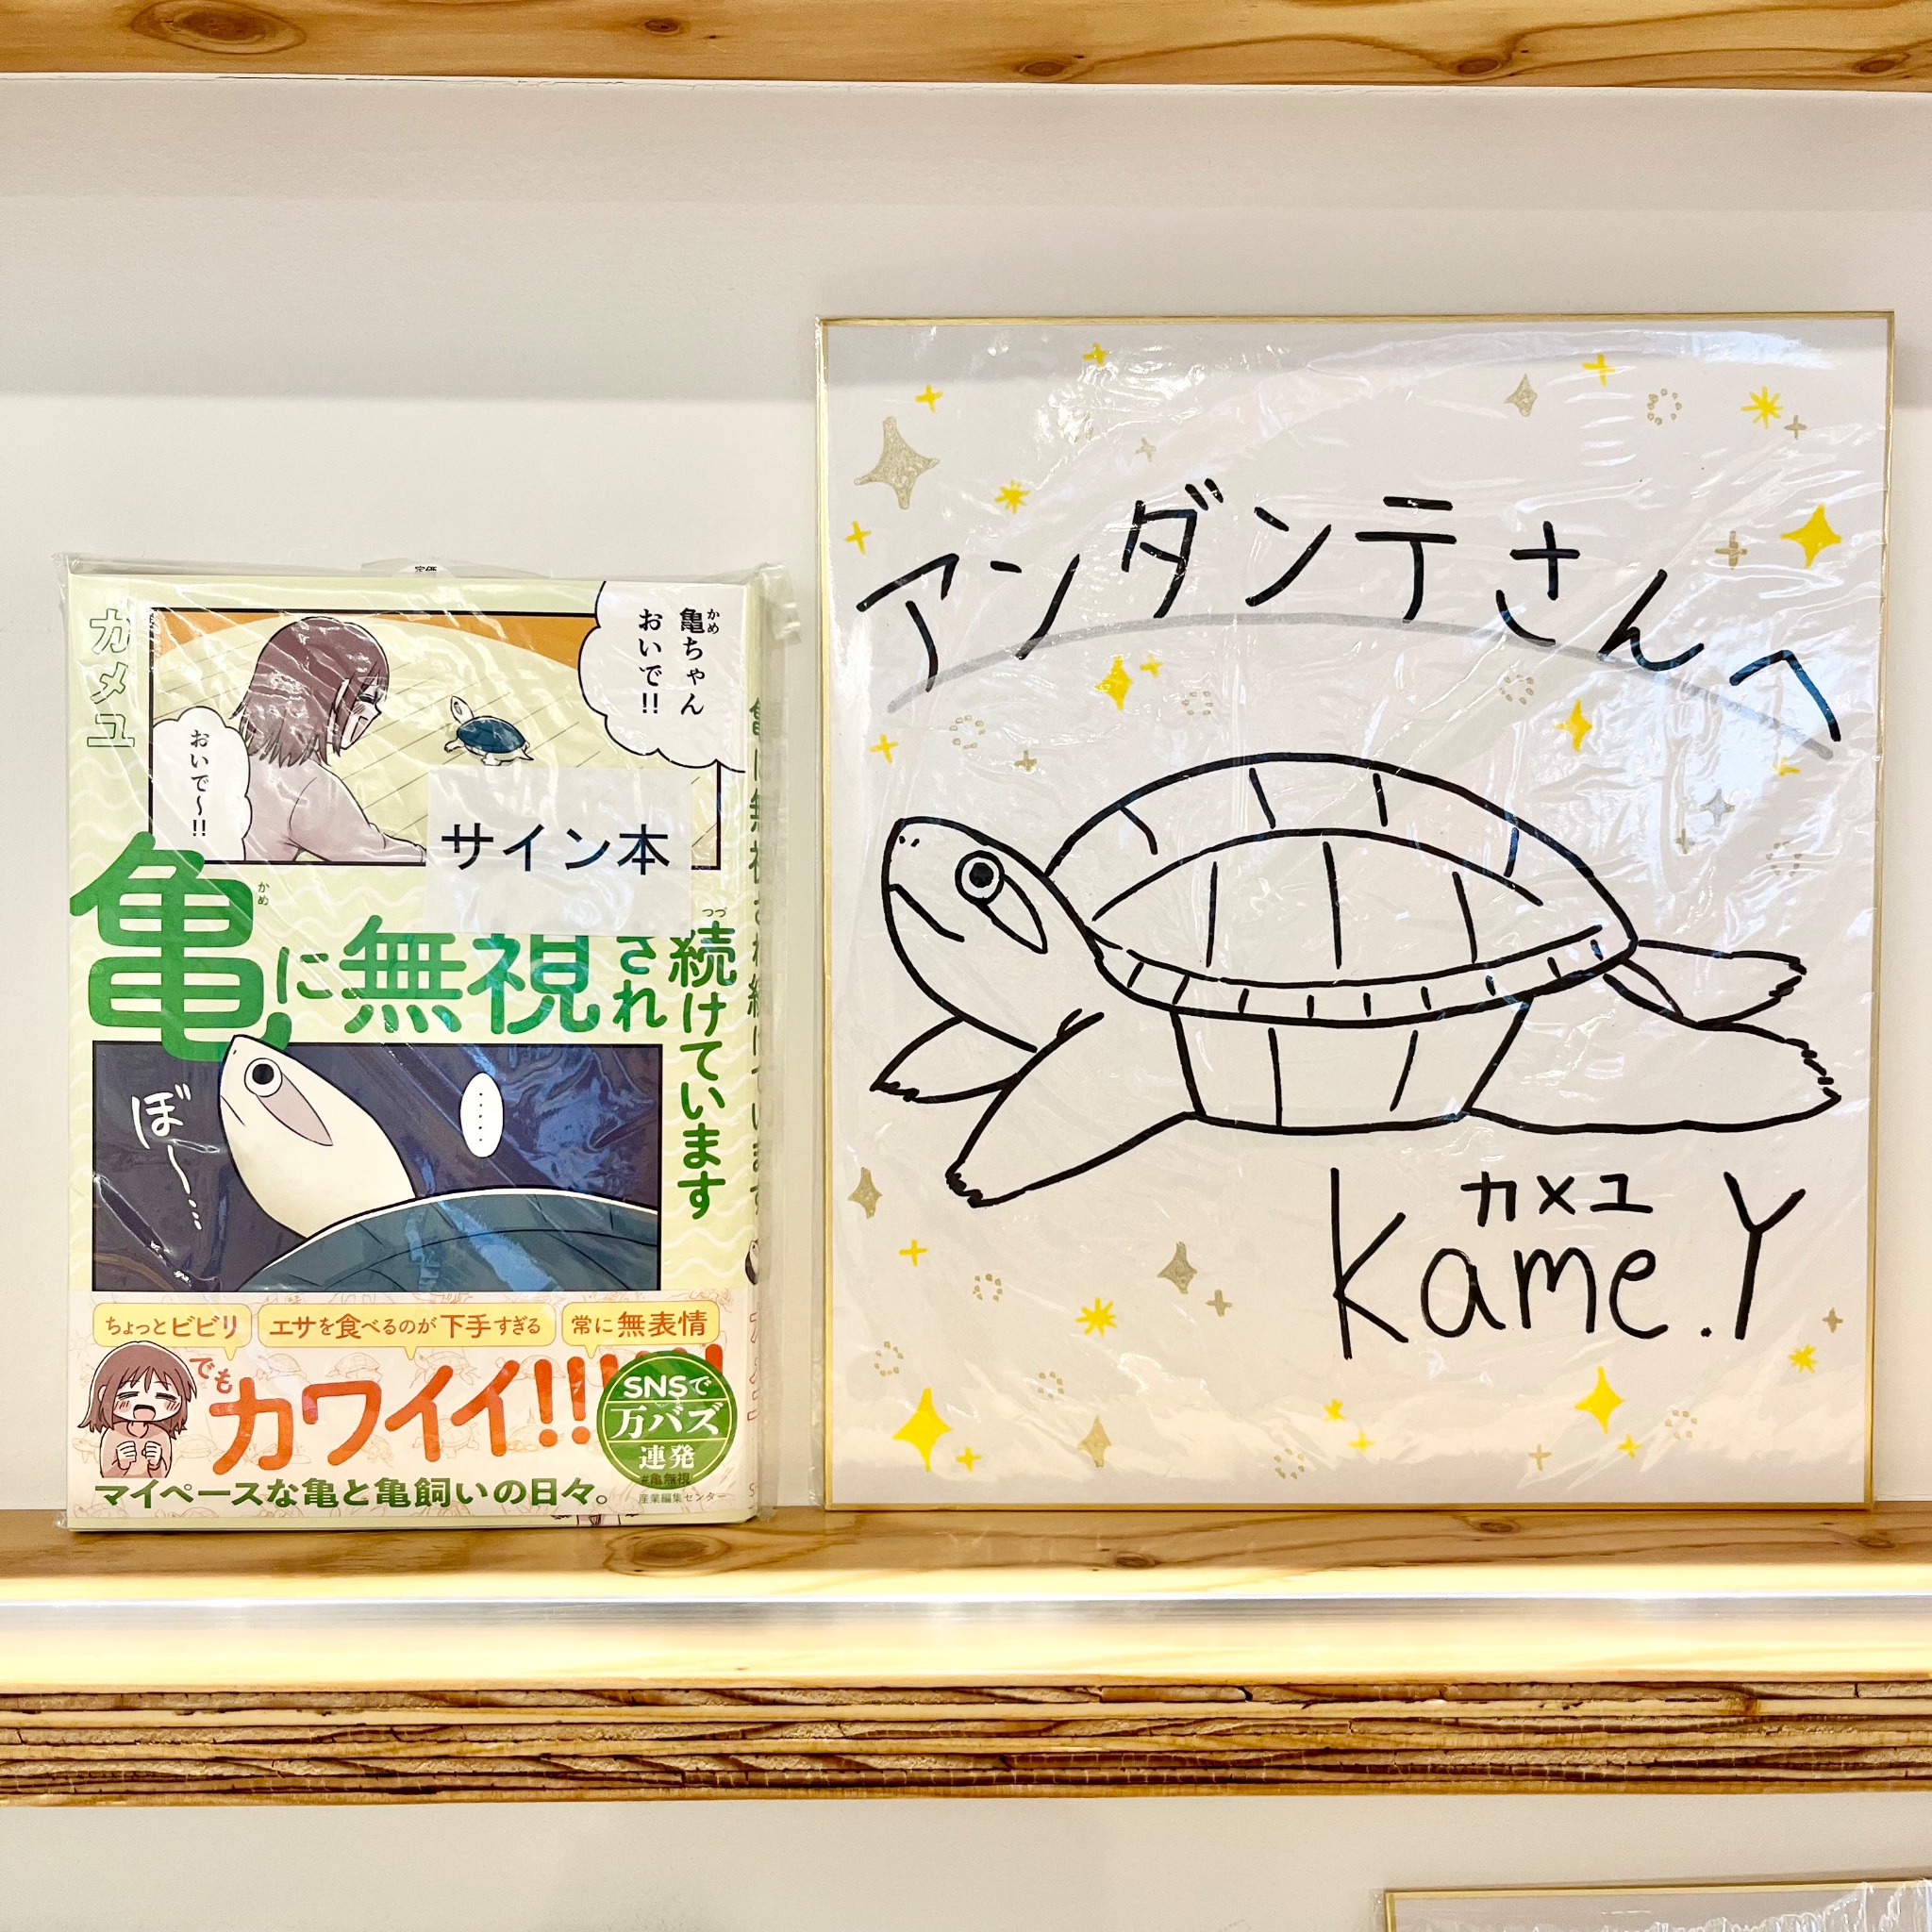 定価
カメユ
亀ちゃん
かめ
おいで!!
おいで〜!!
サイン本
亀に無視され続けています
かめ
つづ
ぼ〜…
……
ちょっとビビリ
エサを食べるのが下手すぎる
常に無表情
でも
カワイイ!!!!!!
SNSで
万バズ
連発
#亀無視
マイペースな亀と亀飼いの日々。
産業編集センター
アンダンテさんへ
カメユ
Kame.Y